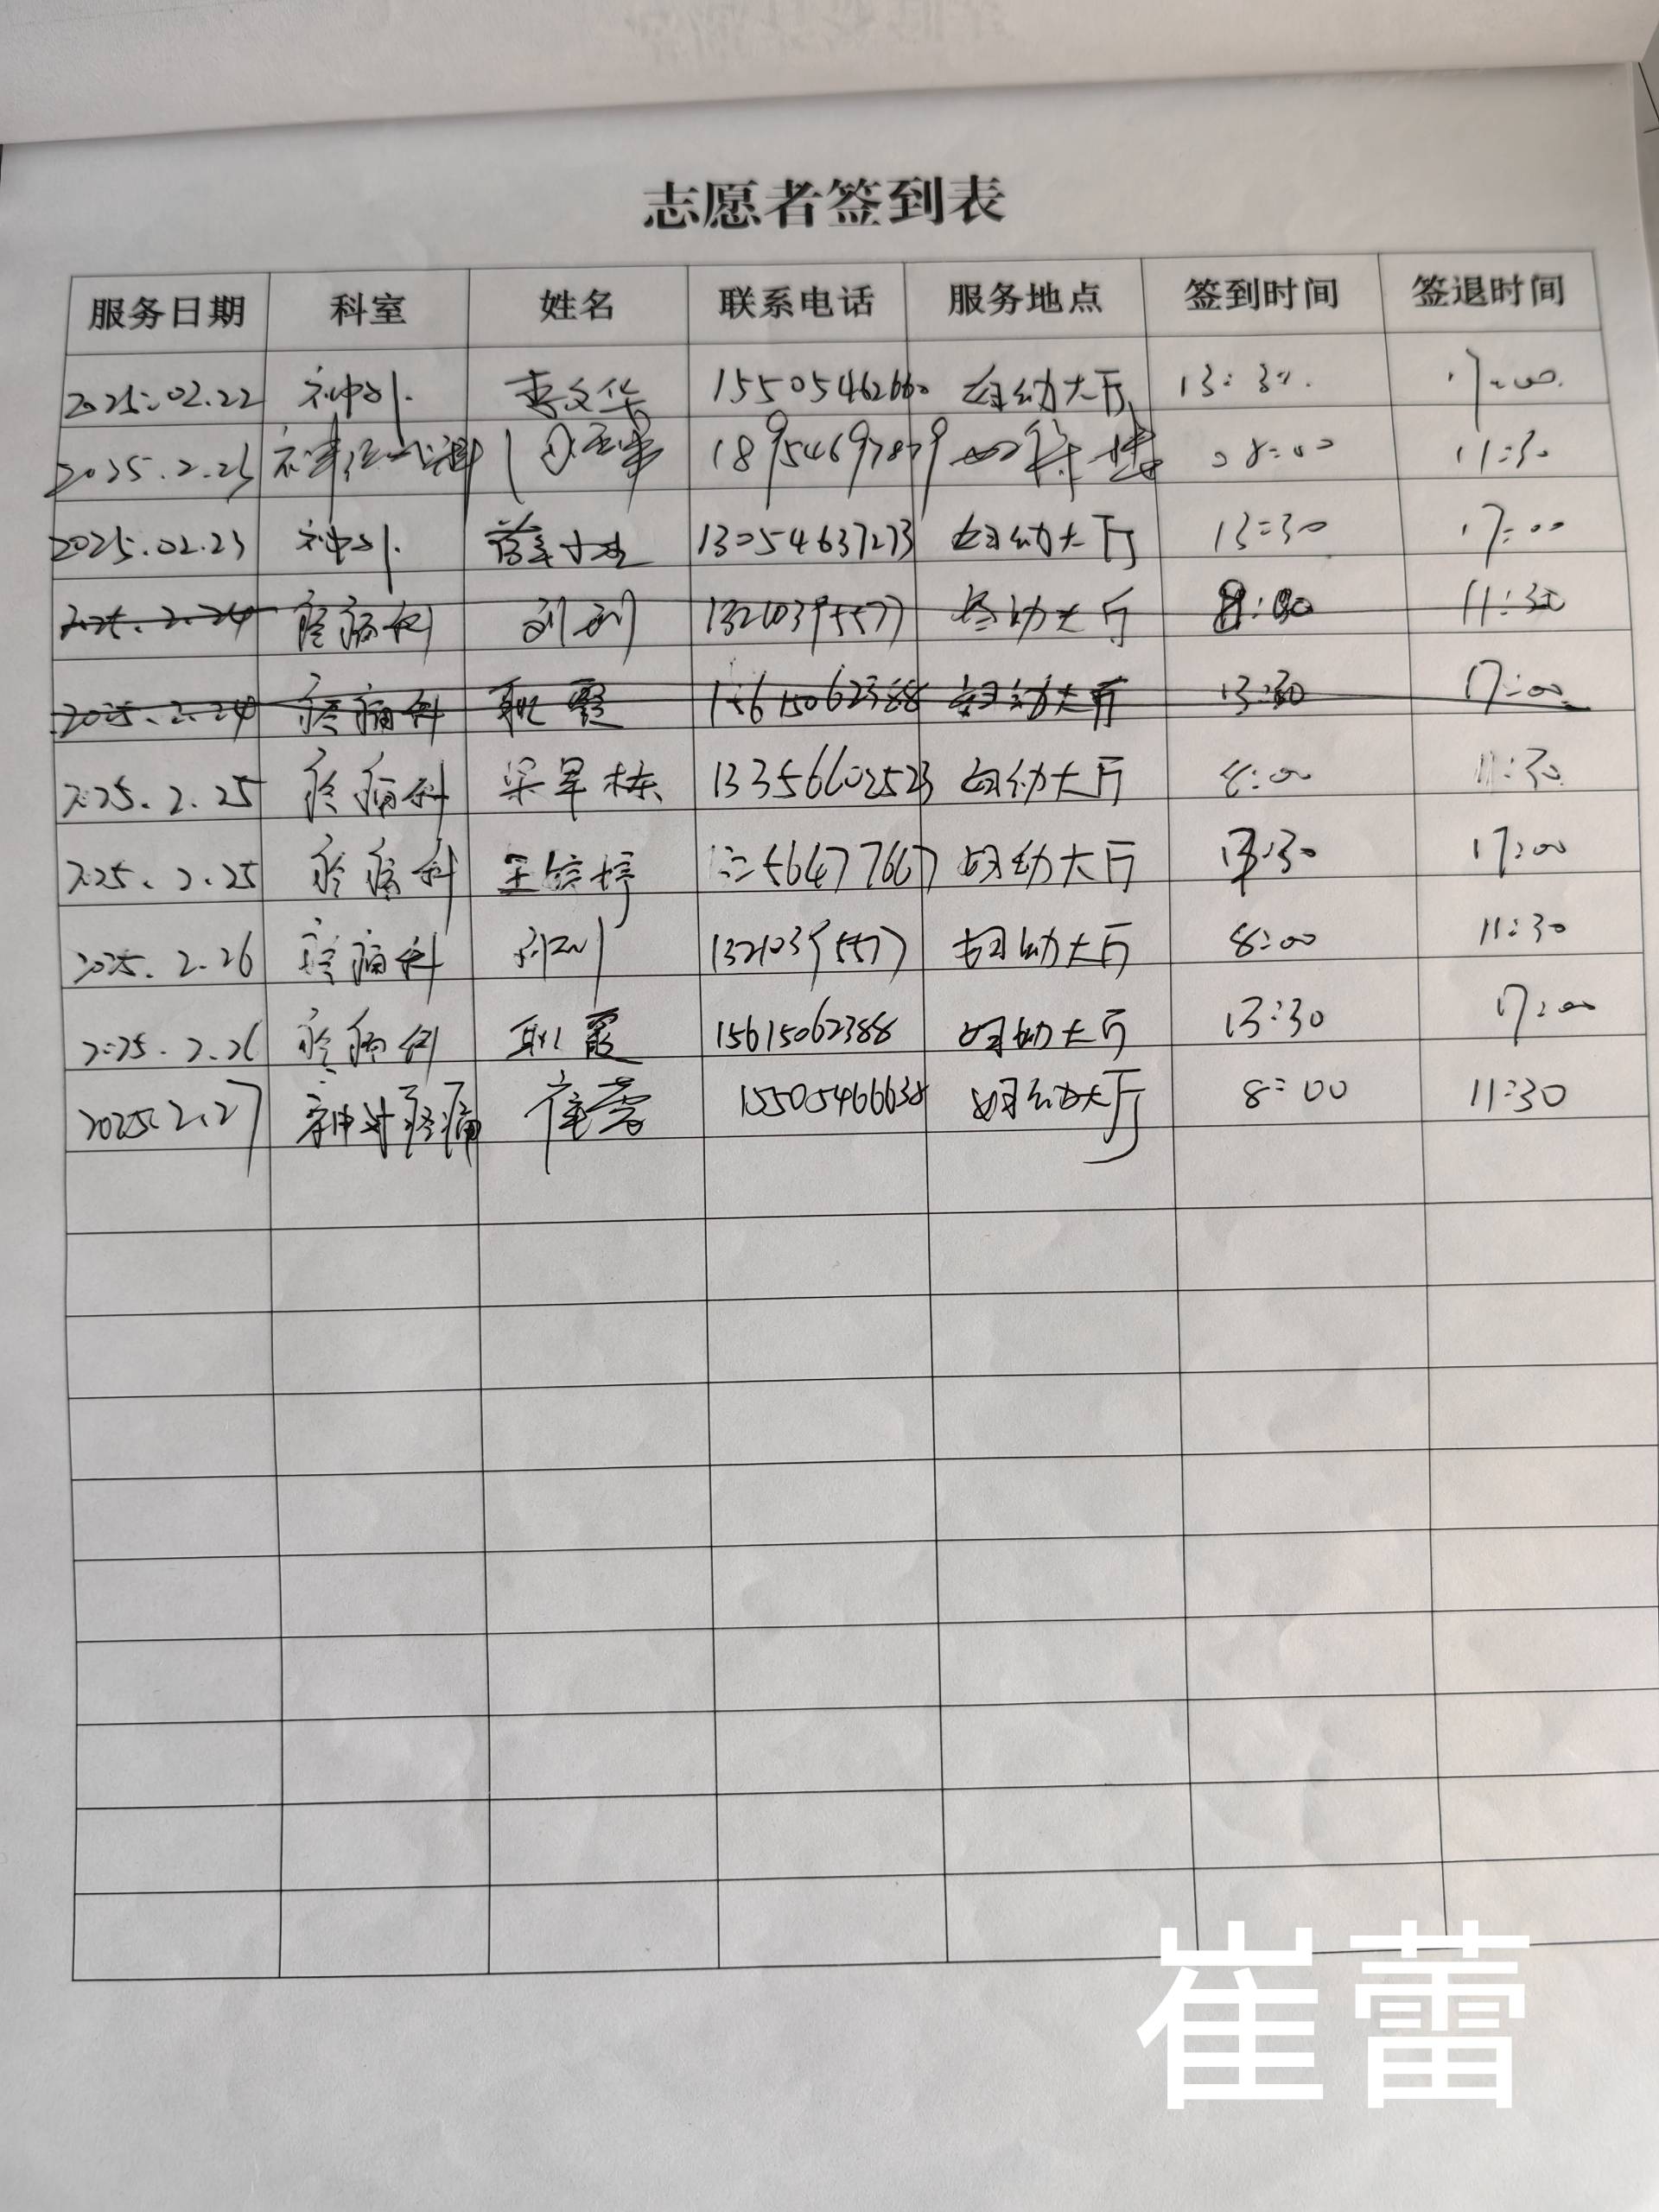 志愿者签到表
服务日期 科室 姓名 联系电话 服务地点 签到时间 签退时间
2025.02.22 神外 李文华 15505462660 妇幼大厅 13:30 17:00
2025.2.23 18954697879 08:00 11:30
2025.02.23 神外 13054637273 妇幼大厅 13:30 17:00
2025.2.24 疼痛科 妇幼大厅 11:30
2025.2.24 疼痛科 耿霞 15615062388 妇幼大厅 13:30 17:00
2025.2.25 疼痛科 13356602523 妇幼大厅 8:00 11:30
2025.2.25 疼痛科 妇幼大厅 13:30 17:00
2025.2.26 疼痛科 妇幼大厅 8:00 11:30
2025.2.26 疼痛科 耿霞 15615062388 妇幼大厅 13:30 17:00
2025.2.27 神外疼痛 崔蕾 15505466638 妇幼大厅 8:00 11:30
崔蕾